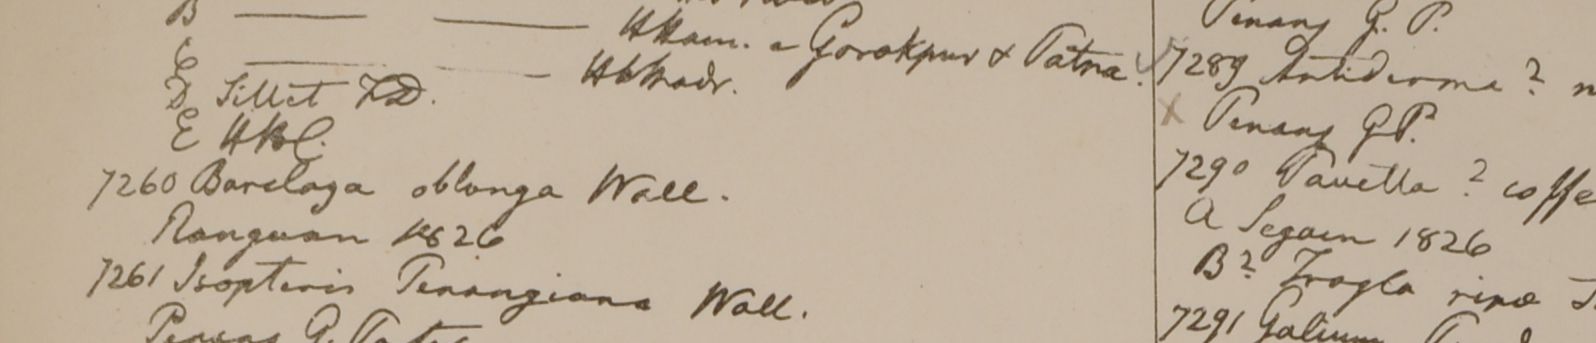 B
HHam. e Gorakpur & Patna.
C HbMadr.
D Sillet FD.
E HBC.
7260 Barclaya oblonga Wall.
Ranguun 1826
7261 Isopteris Penangiana Wall.
Penang G. Porter
Penang G. P.
7289 Antiderma?
Penang GP.
7290 Pavetta? coffe
A Segaen 1826
B?
7291 Galium